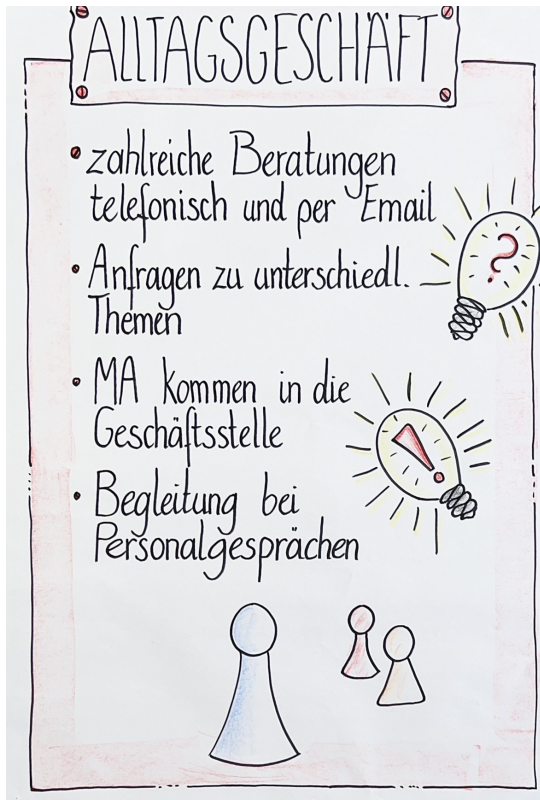 ALLTAGSGESCHÄFT
• zahlreiche Beratungen
telefonisch und per Email
• Anfragen zu unterschiedl.
Themen
• MA kommen in die
Geschäftsstelle
• Begleitung bei
Personalgesprächen
?
!